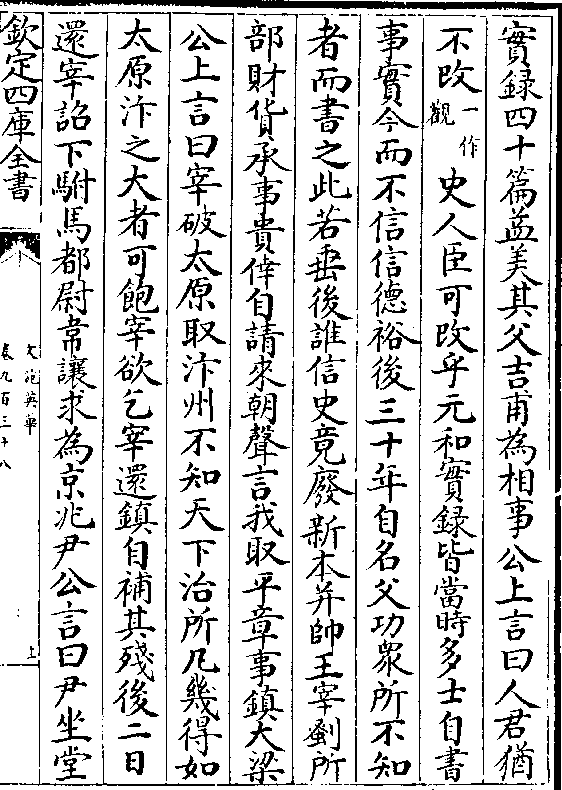 實録四十篇益美其父吉甫為相事公上言曰人君猶
不改一作觀史人臣可改乎元和實録皆當時多士自書
事實今而不信信德裕後三十年自名父功衆所不知
者而書之此若垂後誰信史竟廢新本并帥王宰剗所
部財貨承事貴倖自請來朝聲言我取平章事鎮大梁
公上言曰宰破太原取汴州不知天下治所凡幾得如
太原汴之大者可飽宰欲乞宰還鎮自補其殘後二日
還宰詔下駙馬都尉韋讓求為京兆尹公言曰尹坐堂
欽定四庫全書
文苑英華
卷九百三十八
上